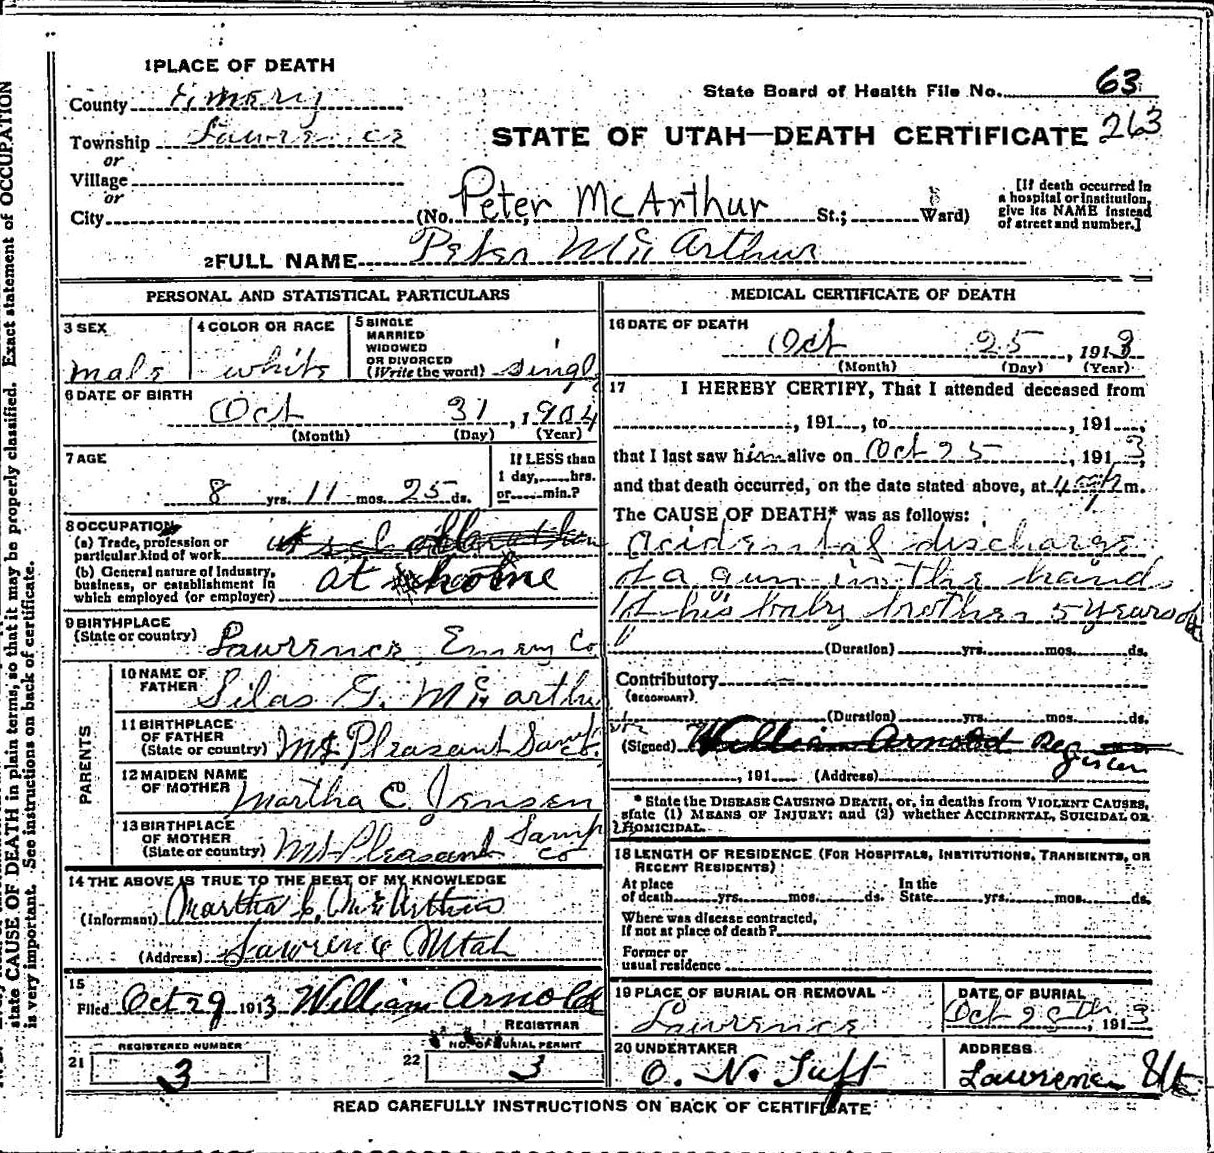 1 PLACE OF DEATH
County Emery
State Board of Health File No. 63
Township Lawrence
STATE OF UTAH—DEATH CERTIFICATE 263
or
Village
or
City (No. Peter McArthur St.; Ward)
[If death occurred in a hospital or institution, give its NAME instead of street and number.]
2 FULL NAME Peter McArthur
PERSONAL AND STATISTICAL PARTICULARS
3 SEX
male
4 COLOR OR RACE
white
5 SINGLE
MARRIED
WIDOWED
OR DIVORCED
(Write the word) singl
6 DATE OF BIRTH
Oct 31, 1904
(Month) (Day) (Year)
7 AGE
8 yrs. 11 mos. 25 ds.
If LESS than
1 day, hrs.
or min.?
8 OCCUPATION
(a) Trade, profession or
particular kind of work
(b) General nature of Industry,
business, or establishment in
which employed (or employer) at home
9 BIRTHPLACE
(State or country) Lawrence, Emery Co
PARENTS
10 NAME OF
FATHER Silas G. McArthu
11 BIRTHPLACE
OF FATHER
(State or country) Mt Pleasant Sanp Co.
12 MAIDEN NAME
OF MOTHER Martha C. Jensen
13 BIRTHPLACE
OF MOTHER
(State or country) Mt Pleasant Sanp Co
14 THE ABOVE IS TRUE TO THE BEST OF MY KNOWLEDGE
(Informant) Martha C. McArthur
(Address) Lawrence Utah
15
Filed Oct 29 1913 William Arnold
REGISTRAR
21 REGISTERED NUMBER
3
22 NO. OF BURIAL PERMIT
3
MEDICAL CERTIFICATE OF DEATH
16 DATE OF DEATH
Oct 25, 1913
(Month) (Day) (Year)
17 I HEREBY CERTIFY, That I attended deceased from
, 191 , to , 191 ,
that I last saw him alive on Oct 25, 1913,
and that death occurred, on the date stated above, at 4 m.
The CAUSE OF DEATH* was as follows:
Acidental discharge
of a gun in the hand
of his baby brother 5 years old
(Duration) yrs. mos. ds.
Contributory
(SECONDARY)
(Duration) yrs. mos. ds.
(Signed) William Arnold Register
, 191 (Address)
* State the DISEASE CAUSING DEATH, or, in deaths from VIOLENT CAUSES,
state (1) MEANS OF INJURY; and (2) whether ACCIDENTAL, SUICIDAL OR
HOMICIDAL.
18 LENGTH OF RESIDENCE (FOR HOSPITALS, INSTITUTIONS, TRANSIENTS, OR
RECENT RESIDENTS)
At place
of death yrs. mos. ds.
In the
State yrs. mos. ds.
Where was disease contracted,
If not at place of death?
Former or
usual residence
19 PLACE OF BURIAL OR REMOVAL
Lawrence
DATE OF BURIAL
, 1913
20 UNDERTAKER
O. N. Tuft
ADDRESS
Lawrence Ut
READ CAREFULLY INSTRUCTIONS ON BACK OF CERTIFICATE
state CAUSE OF DEATH in plain terms, so that it may be properly classified. Exact statement of OCCUPATION
is very important. See instructions on back of certificate.